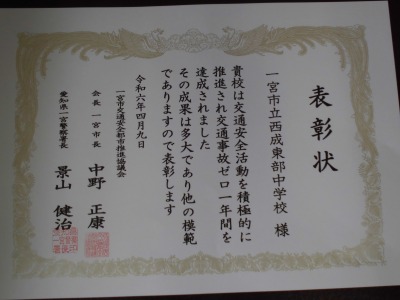 表彰状
一宮市立西成東部中学校 様
貴校は交通安全活動を積極的に
推進され交通事故ゼロ一年間を
達成されました
その成果は多大であり他の模範
でありますので表彰します
令和六年四月九日
一宮市交通安全都市推進協議会
会長 一宮市長 中野 正康
愛知県一宮警察署長 景山 健治